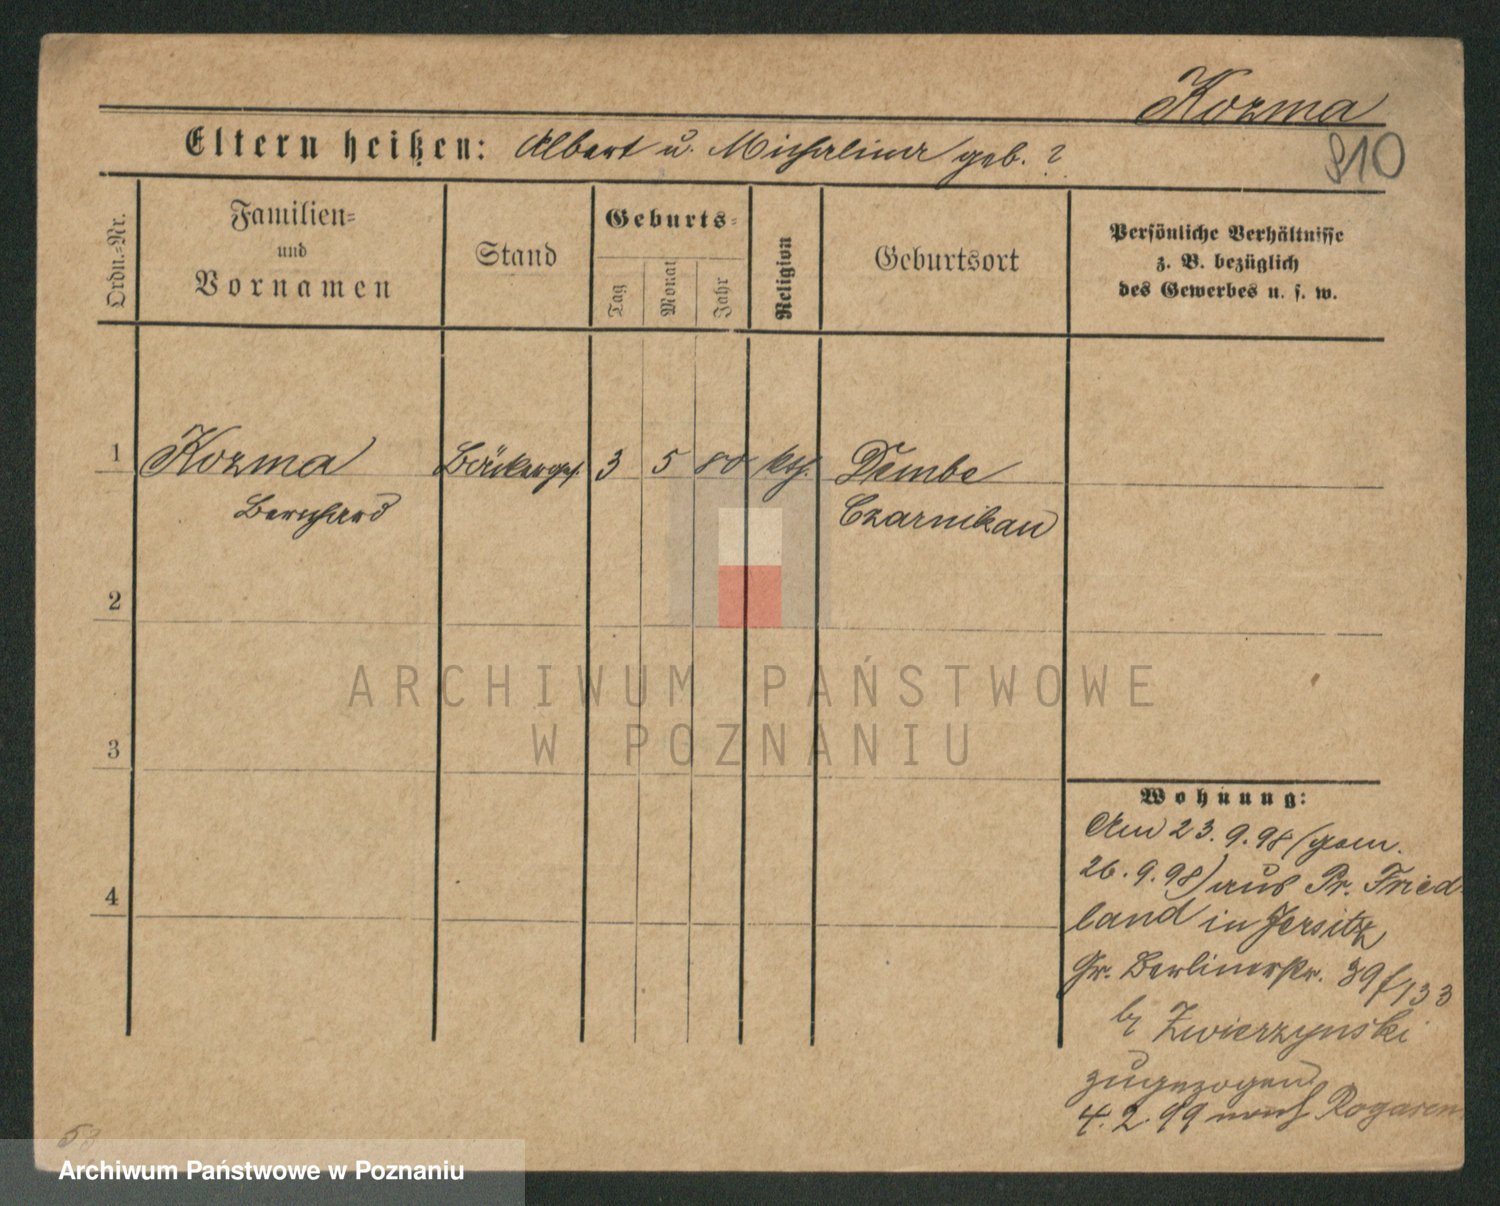 Kozma
Eltern heißen: Albert u. Michalina geb. ?
910
Ordn.-Nr.
Familien-
und
Vornamen
Stand
Geburts-
Tag
Monat
Jahr
Religion
Geburtsort
Persönliche Verhältnisse
z. B. bezüglich
des Gewerbes u. s. w.
1 Kozma Bäckerges. 3 5 80 kth. Dembe
Bernhard Czarnikau
2
ARCHIWUM PAŃSTWOWE
W POZNANIU
3
4
Wohnung:
Am 23.9.98 (gem.
26.9.98) aus Pr. Fried-
land in Jersitz
Gr. Berlinerstr. 39/133
b/ Zwierzynski
zugezogen
4.2.99 nach Rogasen
Archiwum Państwowe w Poznaniu